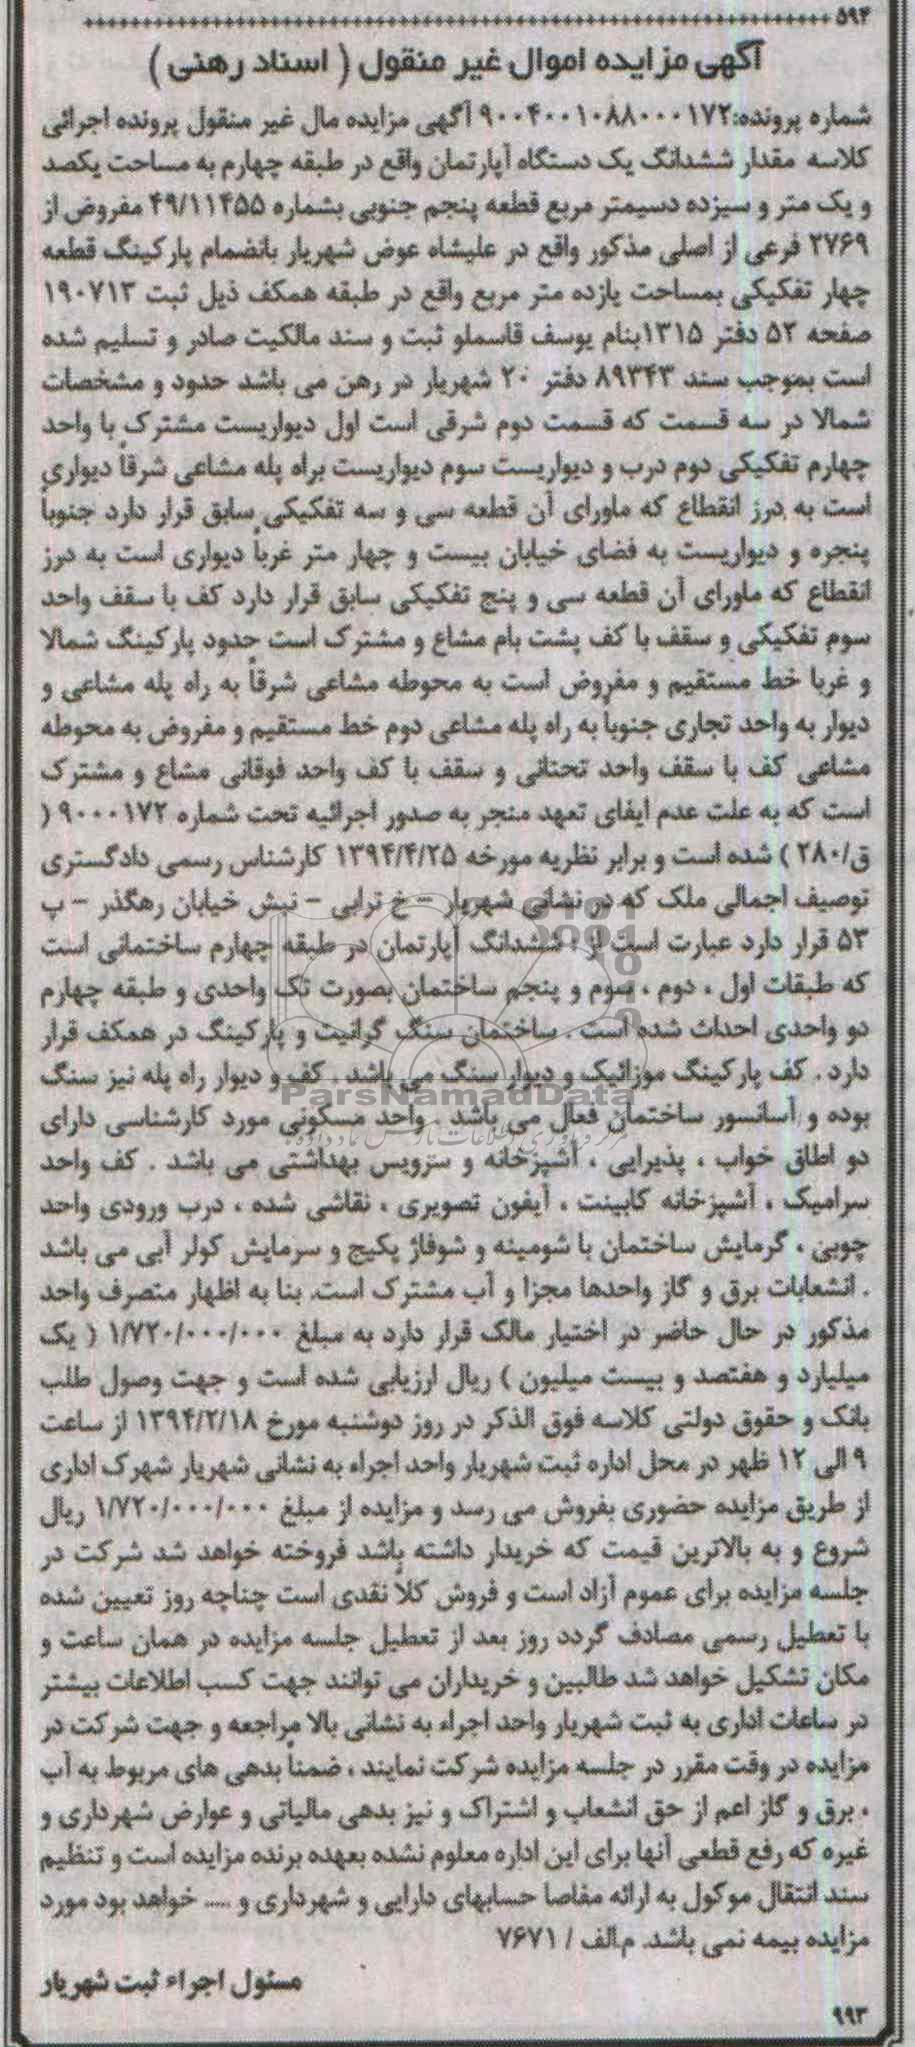 ۵۹۴
آگهی مزایده اموال غیر منقول ( اسناد رهنی )
شماره پرونده:۹۰۰۴۰۰۱۰۸۸۰۰۰۱۷۲ آگهی مزایده مال غیر منقول پرونده اجرائی
کلاسه مقدار ششدانگ یک دستگاه آپارتمان واقع در طبقه چهارم به مساحت یکصد
و یک متر و سیزده دسیمتر مربع قطعه پنجم جنوبی بشماره ۴۹/۱۱۴۵۵ مفروض از
۲۷۶۹ فرعی از اصلی مذکور واقع در علیشاه عوض شهریار بانضمام پارکینگ قطعه
چهار تفکیکی بمساحت یازده متر مربع واقع در طبقه همکف ذیل ثبت ۱۹۰۷۱۳
صفحه ۵۲ دفتر ۱۳۱۵بنام یوسف قاسملو ثبت و سند مالکیت صادر و تسلیم شده
است بموجب سند ۸۹۳۴۳ دفتر ۲۰ شهریار در رهن می باشد حدود و مشخصات
شمالا در سه قسمت که قسمت دوم شرقی است اول دیواریست مشترک با واحد
چهارم تفکیکی دوم درب و دیواریست سوم دیواریست براه پله مشاعی شرقاً دیواری
است به درز انقطاع که ماورای آن قطعه سی و سه تفکیکی سابق قرار دارد جنوباً
پنجره و دیواریست به فضای خیابان بیست و چهار متر غرباً دیواری است به درز
انقطاع که ماورای آن قطعه سی و پنج تفکیکی سابق قرار دارد کف با سقف واحد
سوم تفکیکی و سقف با کف پشت بام مشاع و مشترک است حدود پارکینگ شمالا
و غربا خط مستقیم و مفروض است به محوطه مشاعی شرقاً به راه پله مشاعی و
دیوار به واحد تجاری جنوباً به راه پله مشاعی دوم خط مستقیم و مفروض به محوطه
مشاعی کف با سقف واحد تحتانی و سقف با کف واحد فوقانی مشاع و مشترک
است که به علت عدم ایفای تعهد منجر به صدور اجرائیه تحت شماره ۹۰۰۰۱۷۲ (
ق/۲۸۰ ) شده است و برابر نظریه مورخه ۱۳۹۴/۴/۲۵ کارشناس رسمی دادگستری
توصیف اجمالی ملک که در نشانی شهریار – خ ترابی – نبش خیابان رهگذر – پ
۵۳ قرار دارد عبارت است از : ششدانگ آپارتمان در طبقه چهارم ساختمانی است
که طبقات اول ، دوم ، سوم و پنجم ساختمان بصورت تک واحدی و طبقه چهارم
دو واحدی احداث شده است . ساختمان سنگ گرانیت و پارکینگ در همکف قرار
دارد . کف پارکینگ موزائیک و دیوار سنگ می باشد . کف و دیوار راه پله نیز سنگ
بوده و آسانسور ساختمان فعال می باشد . واحد مسکونی مورد کارشناسی دارای
دو اطاق خواب ، پذیرایی ، آشپزخانه و سرویس بهداشتی می باشد . کف واحد
سرامیک ، آشپزخانه کابینت ، آیفون تصویری ، نقاشی شده ، درب ورودی واحد
چوبی ، گرمایش ساختمان با شومینه و شوفاژ پکیج و سرمایش کولر آبی می باشد
. انشعابات برق و گاز واحدها مجزا و آب مشترک است. بنا به اظهار متصرف واحد
مذکور در حال حاضر در اختیار مالک قرار دارد به مبلغ ۱/۷۲۰/۰۰۰/۰۰۰ ( یک
میلیارد و هفتصد و بیست میلیون ) ریال ارزیابی شده است و جهت وصول طلب
بانک و حقوق دولتی کلاسه فوق الذکر در روز دوشنبه مورخ ۱۳۹۴/۲/۱۸ از ساعت
۹ الی ۱۲ ظهر در محل اداره ثبت شهریار واحد اجراء به نشانی شهریار شهرک اداری
از طریق مزایده حضوری بفروش می رسد و مزایده از مبلغ ۱/۷۲۰/۰۰۰/۰۰۰ ریال
شروع و به بالاترین قیمت که خریدار داشته باشد فروخته خواهد شد شرکت در
جلسه مزایده برای عموم آزاد است و فروش کلاً نقدی است چناچه روز تعیین شده
با تعطیل رسمی مصادف گردد روز بعد از تعطیل جلسه مزایده در همان ساعت و
مکان تشکیل خواهد شد طالبین و خریداران می توانند جهت کسب اطلاعات بیشتر
در ساعات اداری به ثبت شهریار واحد اجراء به نشانی بالا مراجعه و جهت شرکت در
مزایده در وقت مقرر در جلسه مزایده شرکت نمایند ، ضمناً بدهی های مربوط به آب
، برق و گاز اعم از حق انشعاب و اشتراک و نیز بدهی مالیاتی و عوارض شهرداری و
غیره که رفع قطعی آنها برای این اداره معلوم نشده بعهده برنده مزایده است و تنظیم
سند انتقال موکول به ارائه مفاصا حسابهای دارایی و شهرداری و .... خواهد بود مورد
مزایده بیمه نمی باشد. م.الف / ۷۶۷۱
مسئول اجراء ثبت شهریار
۹۹۳
ParsNamadData